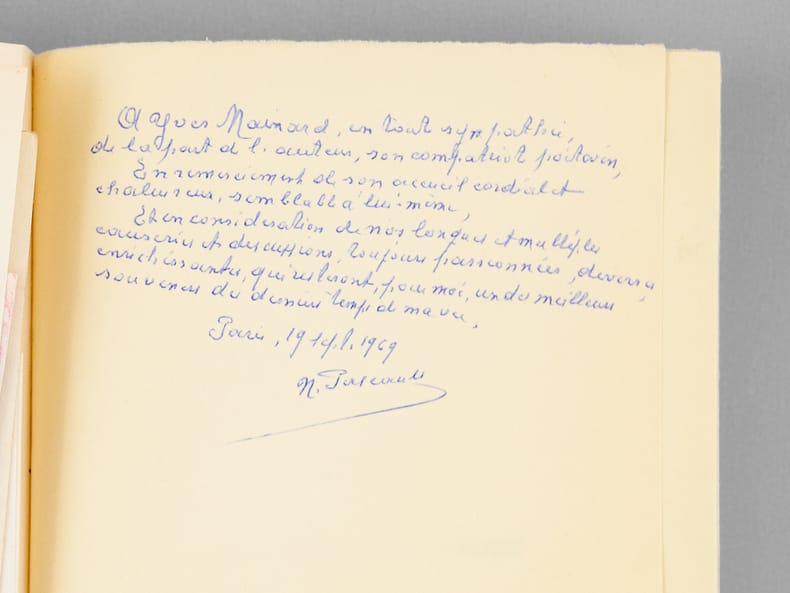 A Yves Mainard, en tout sympathie,
de la part de l'auteur, son compatriot poitevin,
En remerciement de son accueil cordial et
chaleureux, semblable à lui-même,
Et en considération de nos longues et multiples
causeries et discussions, toujours passionnées, diverses,
enrichissantes, qui resteront, pour moi, un des meilleurs
souvenirs du dernier temps de ma vie.
Paris, 19 sept. 1969